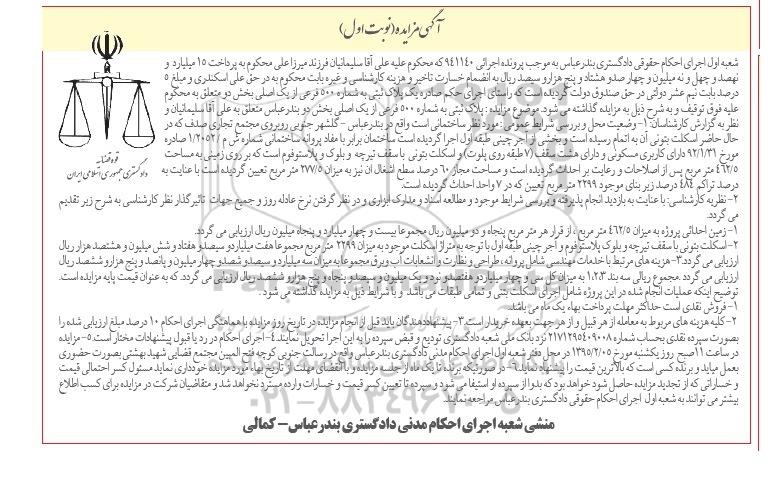 آگهی مزایده (نوبت اول)
شعبه اول اجرای احکام حقوقی دادگستری بندرعباس به موجب پرونده اجرائی ۹۴۱۱۴۰ که محکوم علیه علی آقا سلیمانیان فرزند میرزا علی محکوم به پرداخت ۱۵ میلیارد و
نهصد و چهل و نه میلیون و چهار صدو هشتاد و پنج هزار و سیصد ریال به انضمام خسارت تاخیر و هزینه کارشناسی و غیره بابت محکوم به در حق علی اسکندری و مبلغ ۵
درصد بابت نیم عشر دولتی در حق صندوق دولت گردیده است که راستای اجرای حکم صادره پلاک ثبتی به شماره ۵۰۰ فرعی از یک اصلی بخش دو متعلق به محکوم
علیه فوق توقیف و به شرح ذیل به مزایده گذاشته می شود. موضوع مزایده: پلاک ثبتی به شماره ۵۰۰ فرعی از یک اصلی بخش دو بندرعباس متعلق به علی آقا سلیمانیان و
نظر به گزارش کارشناسان: ۱- وضعیت محل و بررسی شرایط عمومی: مورد نظر ساختمانی است واقع در بندرعباس - گلشهر جنوبی روبروی مجتمع تجاری صدف که در
حال حاضر اسکلت بتونی آن به اتمام رسیده است و بخشی از آجر چینی طبقه اول اجرا گردیده است ساختمان برابر با مفاد پروانه ساختمانی شماره ش م /۱/۲۰۵۲ صادره
مورخ ۹۲/۱/۳۱ دارای کاربری مسکونی و دارای هشت سقف (۷ طبقه روی پلوت) و اسکلت بتونی با سقف تیرچه و بلوک و پلاستوفوم است که بر روی زمینی به مساحت
۴۶۲/۵ متر مربع پس از اصلاحات و رعایت بر احداث گردیده است و مساحت مجاز ۶۰ درصد سطح اشغال آن نیز به میزان ۲۷۷/۵ متر مربع تعیین گردیده است با عنایت به
درصد تراکم ۴۸۴ درصد زیر بنای موجود ۲۲۹۹ متر مربع تعیین که در ۷ واحد احداث گردیده است.
۲- نظریه کارشناسی: با عنایت به بازدید انجام پذیرفته و بررسی شرایط موجود و مطالعه اسناد و مدارک ابرازی و در نظر گرفتن نرخ عادله روز و جمیع جهات تاثیرگذار نظر کارشناسی به شرح زیر تقدیم
می گردد.
۱- زمین احداثی پروژه به میزان ۴۶۲/۵ متر مربع ، از قرار هر متر مربع پنجاه و دو میلیون ریال مجموعا بیست و چهار میلیارد و پنجاه میلیون ریال ارزیابی می گردد.
۲- اسکلت بتونی با سقف تیرچه و بلوک پلاستوفوم و آجر چینی طبقه اول با توجه به متراژ اسکلت موجود به میزان ۲۲۹۹ متر مربع مجموعا هفت میلیارد و سیصد و هفتاد و شش میلیون و هشتصد هزار ریال
ارزیابی می گردد. ۳- هزینه های مرتبط با خدمات مهندسی شامل پروانه ، طراحی و نظارت و انشعابات آب و برق مجموعا به میزان سه میلیارد و سیصد و شصد و چهار میلیون و پانصد و پنج هزار و ششصد ریال
ارزیابی می گردد. مجموع ریالی سه بند ۱،۲،۳ به میزان کل سی و چهار میلیارد و هفتصد و نود و یک میلیون و سیصد و پنجاه و پنج هزار و ششصد ریال ارزیابی می گردد. که به عنوان قیمت پایه مزایده است.
توضیح اینکه عملیات انجام شده در این پروژه شامل اجرای اسکلت بتنی و تمامی طبقات می باشد و با شرایط ذیل به مزایده گذاشته می شود .
۱- فروش نقدی است حداکثر مهلت پرداخت بهاء یک ماه می باشد.
۲- کلیه هزینه های مربوط به معامله از هر قبیل و از هر جهت بعهده خریدار است. ۳- پیشنهاددهندگان باید قبل از انجام مزایده در تاریخ روز مزایده با هماهنگی اجرای احکام ۱۰ درصد مبلغ ارزیابی شده را
بصورت سپرده نقدی بحساب شماره ۲۱۷۱۲۹۵۴۰۹۰۰۸ نزد بانک ملی شعبه دادگستری تودیع و قبض سپرده را به این اجرا تحویل نمایند. ۴- اجرای احکام در رد یا قبول پیشنهادات مختار است. ۵- مزایده
در ساعت ۱۱ صبح روز یکشنبه مورخ ۱۳۹۵/۲/۰۵ در محل دفتر شعبه اول اجرای احکام مدنی دادگستری بندرعباس واقع در رسالت جنوبی کوچه فتح المبین مجتمع قضایی شهید بهشتی بصورت حضوری
بعمل میاید و برنده کسی است که بالاترین قیمت را پیشنهاد نماید. ۶- در صورتیکه برنده تا یک ماه از جلسه مزایده و با انقضای مهلت از تاریخ بهاء مورد مزایده خودداری نماید مسئول کسر احتمالی قیمت
و خساراتی که از تجدید مزایده حاصل شود خواهد بود که بدوا از سپرده او استیفا می شود و سپرده تا تعیین کسر قیمت و خسارات وارده مسترد نخواهد شد و متقاضیان شرکت در مزایده برای کسب اطلاع
بیشتر می توانند به شعبه اول اجرای احکام حقوقی دادگستری بندرعباس مراجعه نمایند.
منشی شعبه اجرای احکام مدنی دادگستری بندرعباس – کمالی
قوه قضائیه
دادگستری جمهوری اسلامی ایران
۰۲۱-۸۸۳۴۹۶۷۰-۵